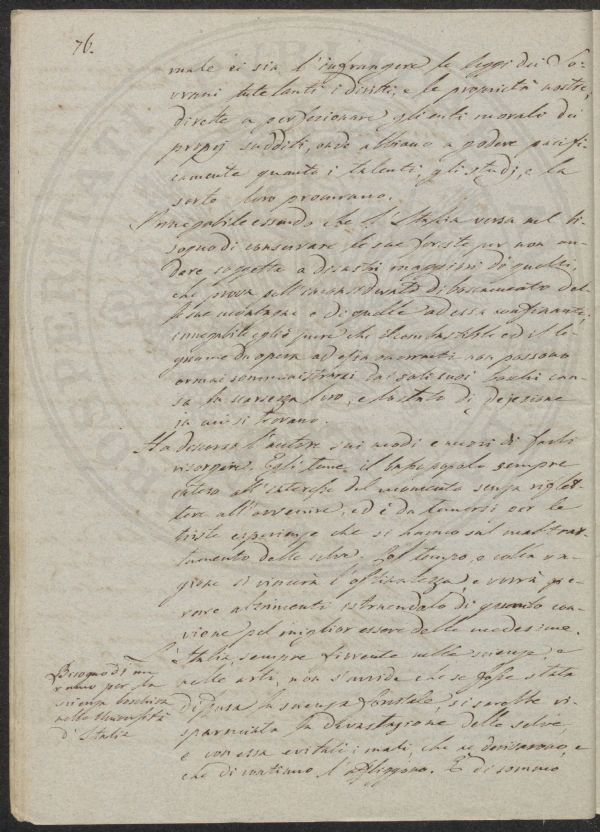 76.
male ci sia l'infrangere le leggi dei So-
vrani tutelanti i diritti, e le proprietà nostre,
dirette a perfezionare gli enti morali dei
proprj sudditi, onde abbiano a godere pacifi-
camente quanto i talenti, gli studj, e la
sorte loro procurano.
Innegabile essendo che l'Italia versa nel bi-
sogno di conservare le sue foreste per non an-
dare soggetta a disastri maggiori di quelli,
che prova sull'inconsiderato diboscamento del
sue montagne e di quelle ad essa confinanti;
innegabile egli è pure che il combustibile ed il le-
gname da opera ad essa occorrenti non possono
ormai somministrarsi dai soli suoi boschi cau-
sa la scarsezza loro, e lo stato di dejezione
in cui si trovano.
Ha discorso l'autore sui modi e mezzi di farli
risorgere. Egli teme il basso popolo sempre
inteso all'interesse del momento senza riflet-
tere all'avvenire, ed è da temersi per le
triste esperienze che si hanno sul maltrat-
tamento delle selve. Col tempo, e colla ra-
gione si vincerà l'ostinatezza, e verrà
altrimenti istruendolo di quanto con-
viene pel miglior essere delle medesime.
L'Italia, sempre fiorente nelle scienze, e
nelle arti, non s'avvide che se fosse stata
diffusa la scienza forestale, si sarebbe ri-
sparmiata la devastazione delle selve,
e con essa evitati i mali, che ne derivarono, e
che di continuo l'affliggono. È di sommo
Bisogno di un
ramo per la
scienza boschiva
nelle Università
d'Italia